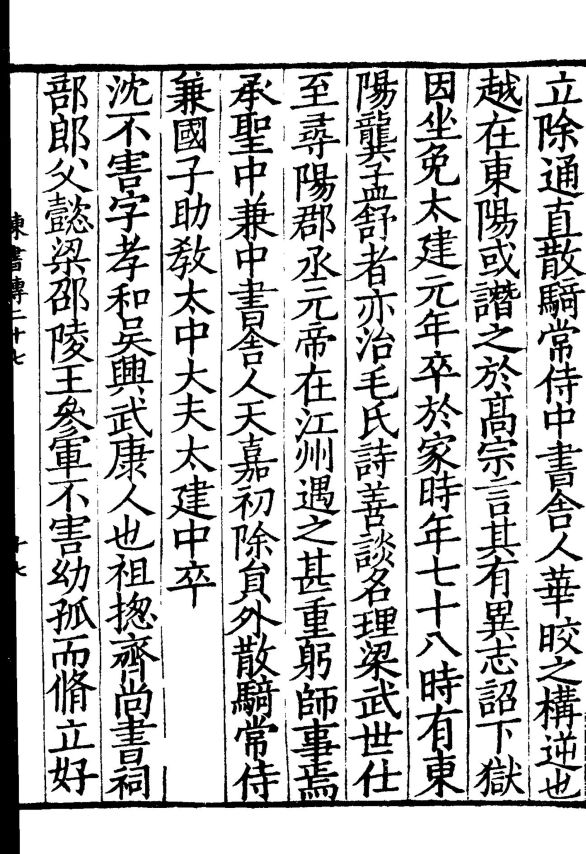 立除通直散騎常侍中書舍人華皎之構逆也
越在東陽或譖之於髙宗言其有異志詔下獄
因坐免太建元年卒於家時年七十八時有東
陽龔孟舒者亦治毛氏詩善談名理梁武世仕
至尋陽郡丞元帝在江州遇之甚重躬師事焉
承聖中兼中書舍人天嘉初除貟外散騎常侍
兼國子助教太中大夫太建中卒
沈不害字孝和吳興武康人也祖揔齊尚書祠
部郎父懿梁邵陵王參軍不害幼孤而脩立好
陳書傳二十七
十七